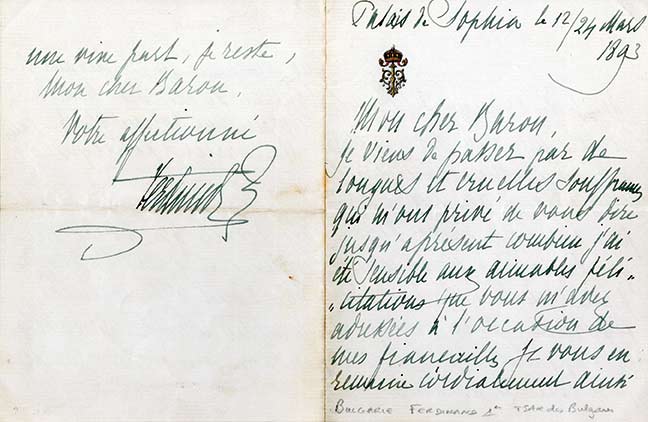 Palais de Sophia le 12/24 Mars
1893
Mon cher Baron,
Je viens de passer par de
longues et cruelles souffrances
qui m'ont privé de vous dire
jusqu'aprésent combien j'ai
été sensible aux aimables féli-
"citations que vous m'avez
adressées à l'occasion de
mes fiançailles. Je vous en
remercie cordialement ainsi
BULGARIE FERDINAND 1er TSAR des Bulgares
une vive part, je reste,
Mon cher Baron,
Votre affectionné
Ferdinand